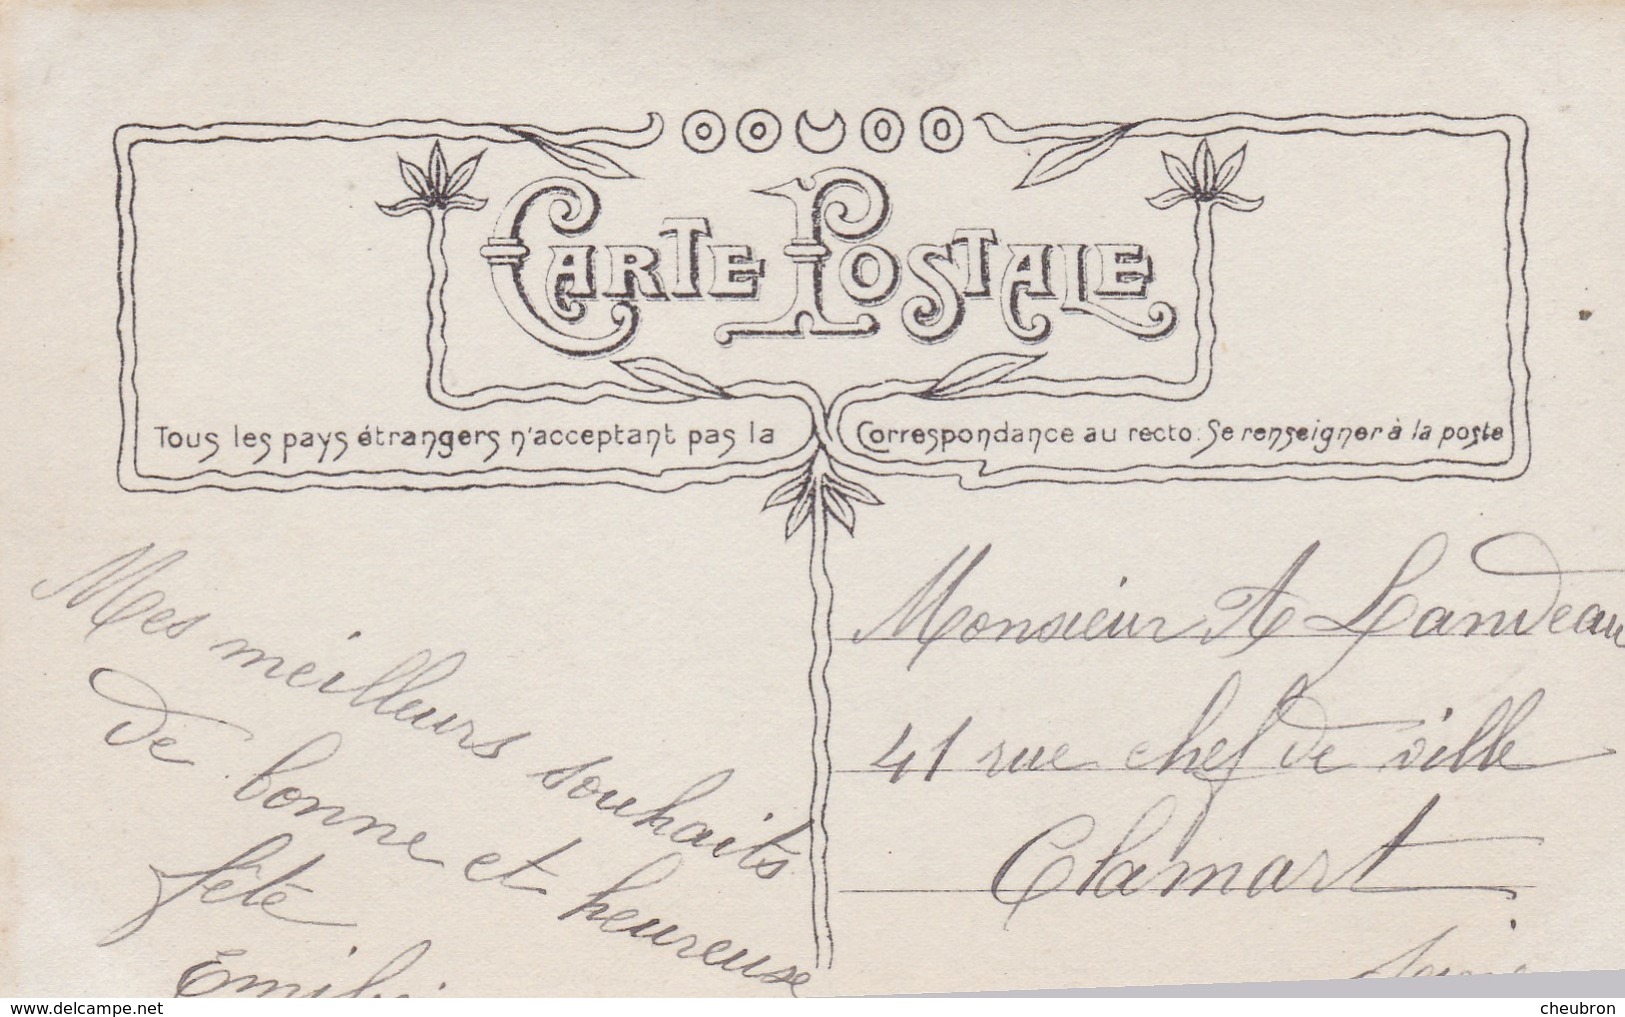 CARTE POSTALE
Tous les pays étrangers n'acceptant pas la Correspondance au recto. Se renseigner à la poste
Mes meilleurs souhaits
de bonne et heureuse
fête
Monsieur A Landeau
41 rue chef de ville
Clamart
Seine
www.delcampe.net
cheubron